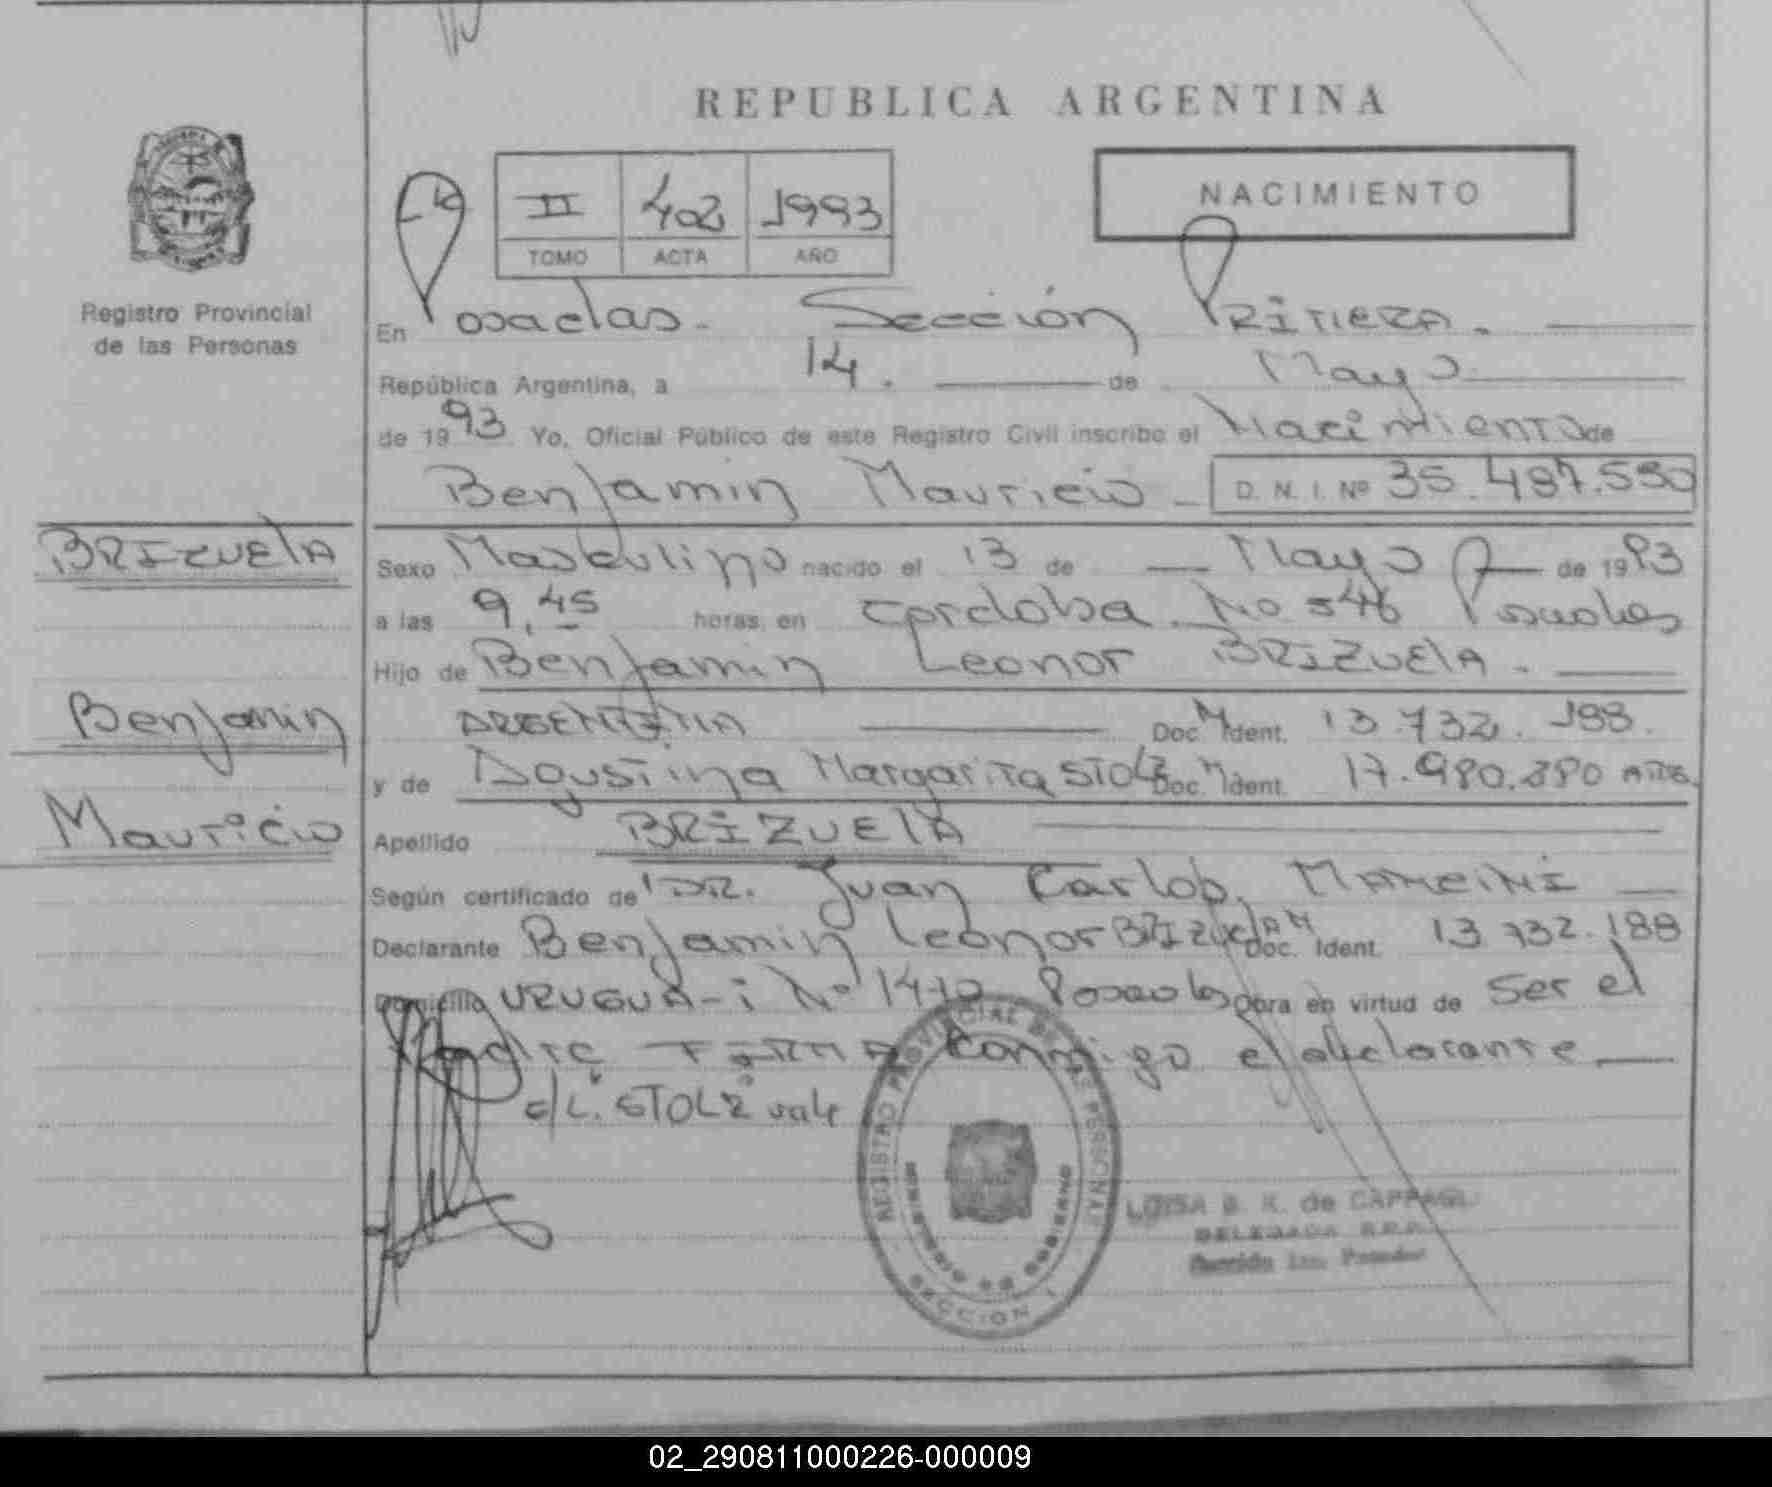 REPUBLICA ARGENTINA
NACIMIENTO
II 402 1993
TOMO ACTA AÑO
Registro Provincial
de las Personas
En Posadas. Sección PRIMERA.
República Argentina, a 14. de Mayo
de 1993 Yo, Oficial Público de este Registro Civil inscribo el Nacimiento de
Benjamin Mauricio D. N. I. Nº 35.487.550
BRIZUELA
Sexo Masculino nacido el 13 de Mayo de 1993
a las 9,45 horas, en Cordoba. No 546 Posadas
Hijo de Benjamin Leonor BRIZUELA.
Benjamin
ARGENTINA Doc. M Ident. 13.732.188.
y de Agustina Margarita STOLZ Doc. M Ident. 17.980.280
Mauricio
Apellido BRIZUELA
Según certificado de DR. Juan Carlos
Declarante Benjamin Leonor BRIZUELA Doc. M Ident. 13.732.188
Domicilio URUGUA-i Nº Posadas Obra en virtud de Ser el
Padre FIRMA Conmigo el declarante
e/L. STOLZ vale
REGISTRO PROVINCIAL DE LAS PERSONAS
MINISTERIO DE GOBIERNO
SECCION 1
LUISA B. K. de
DELEGADA R.P.P.
Sección 1ra. Posadas
02_290811000226-000009